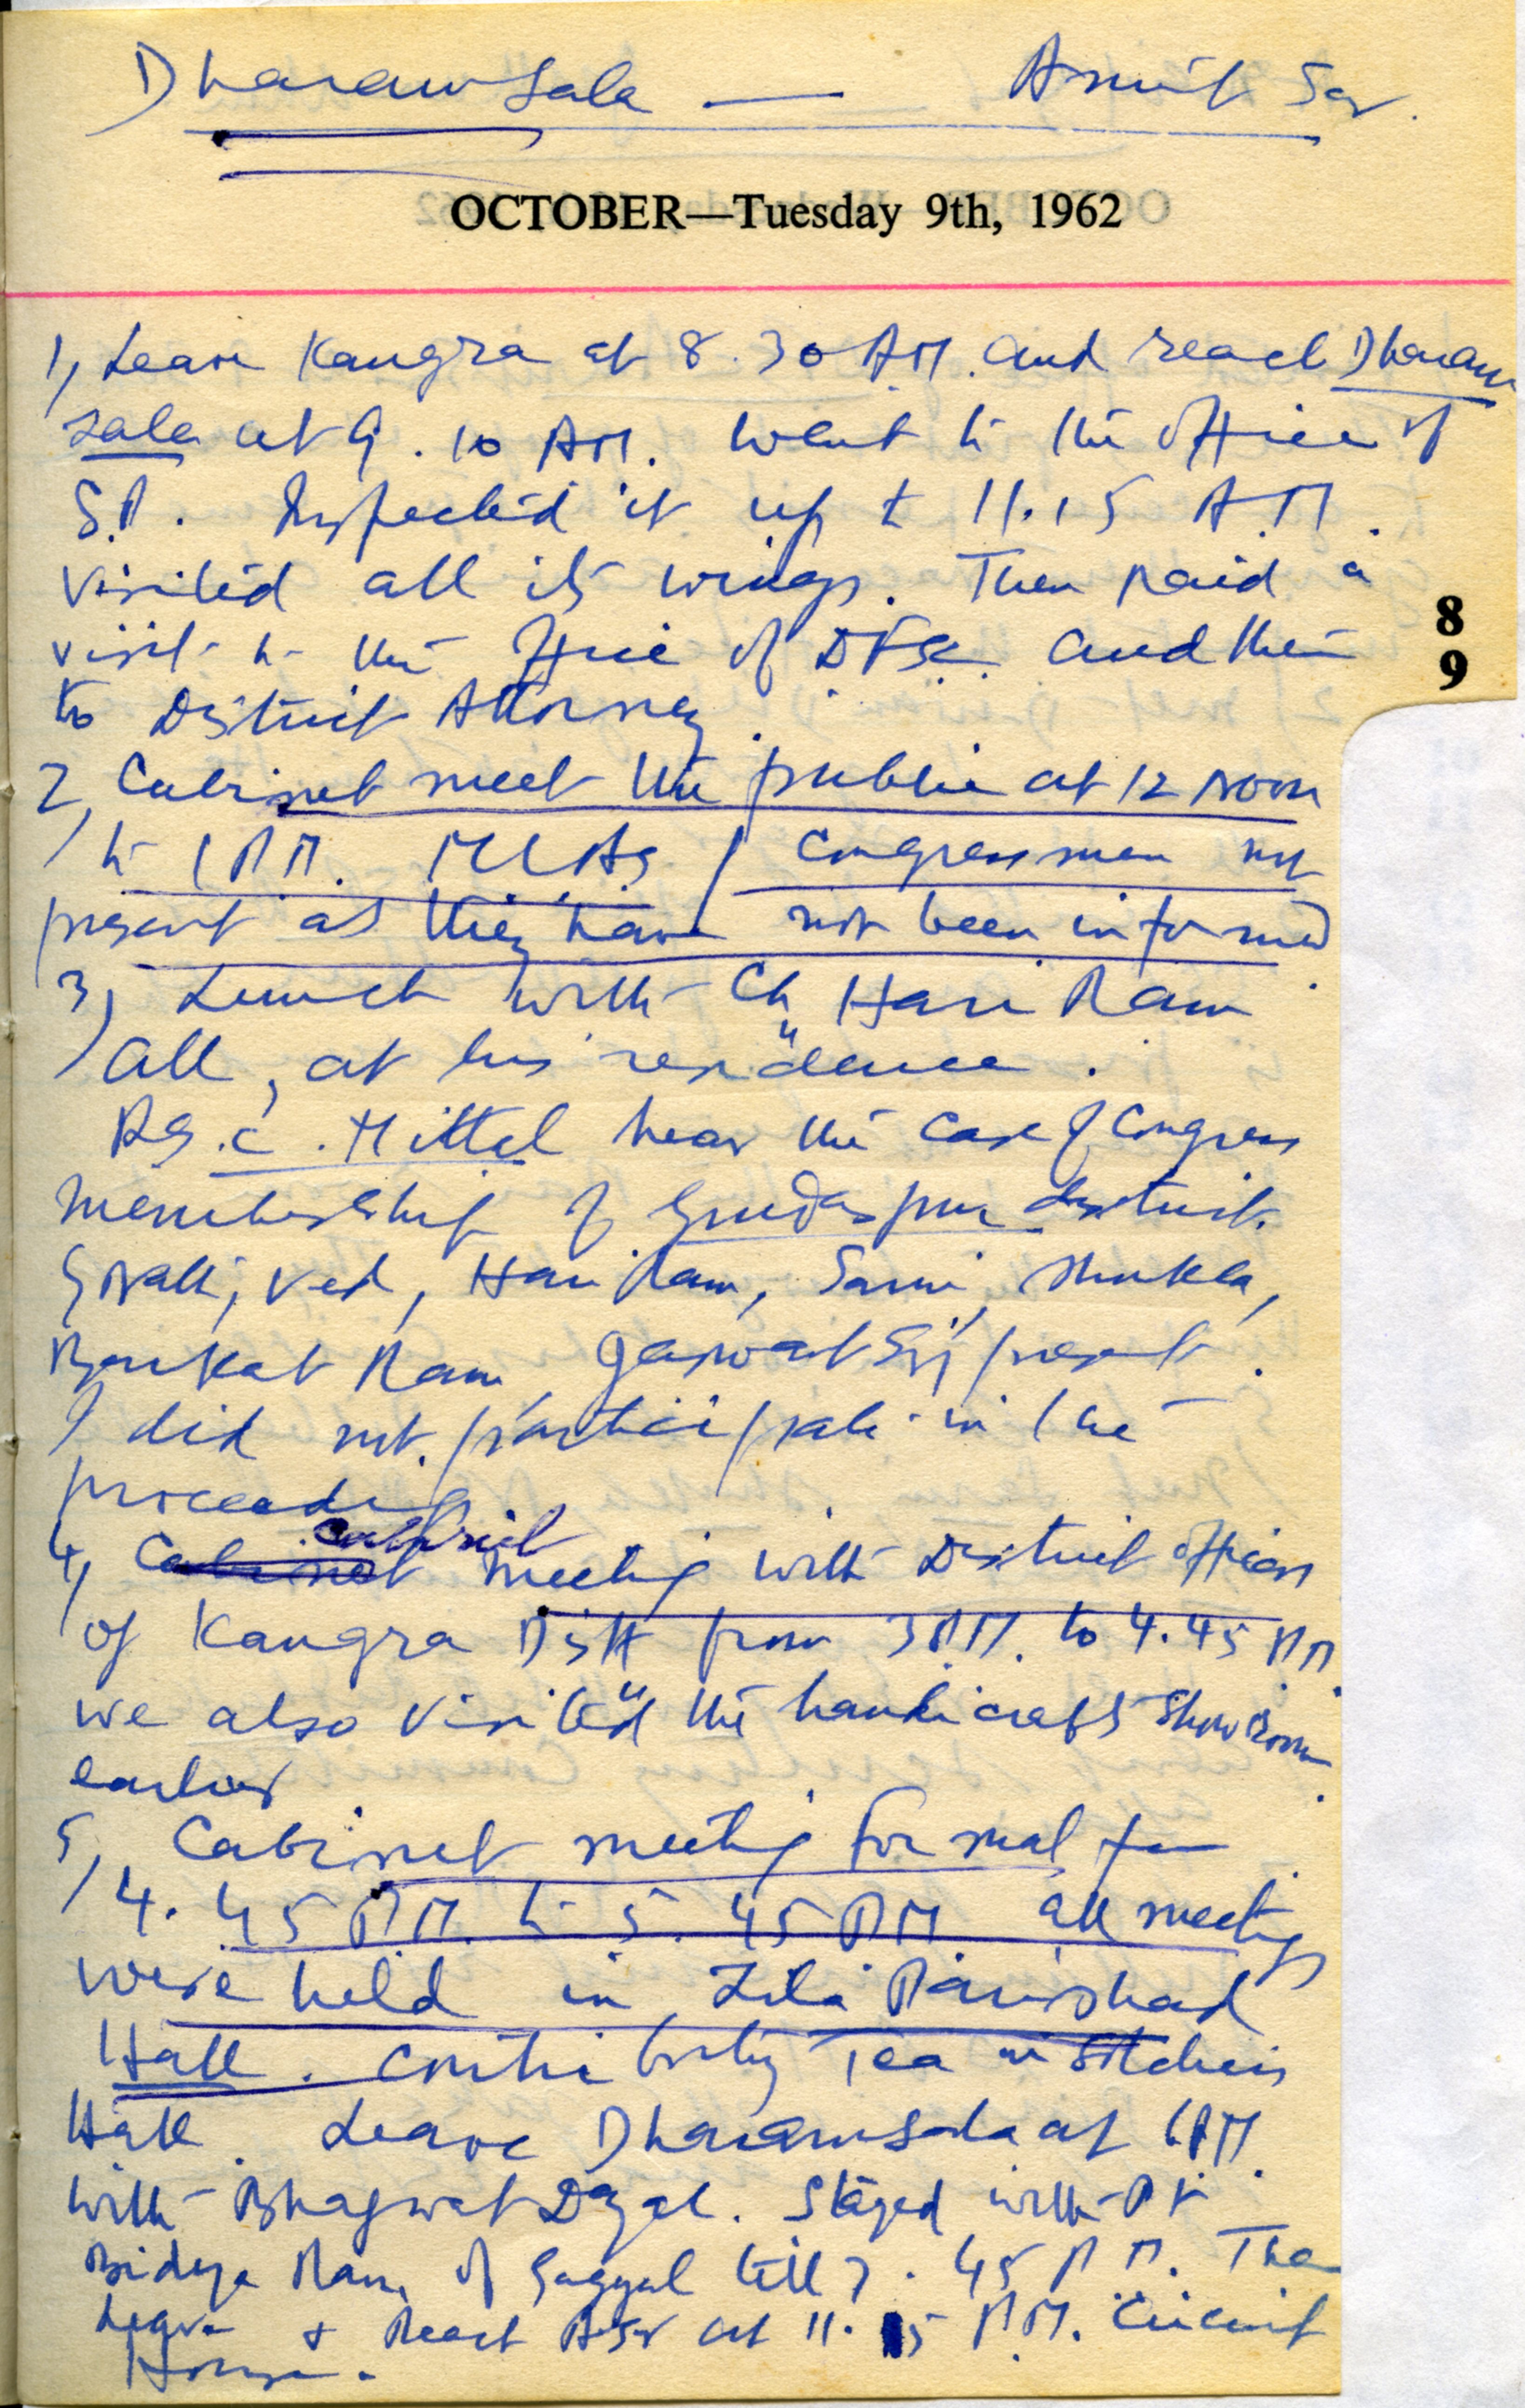 Dharamsala — Amrit Sar.
OCTOBER—Tuesday 9th, 1962
1, Leave Kangra at 8.30 AM. and reach Dharam
sala at 9.10 AM. Went to the office of
S.P. Inspected it up to 11.15 A.M.
visited all its wings. Then paid a
visit to the office of and then
to District Attorney.
8
9
2, Cabinet meet the public at 12 Noon
to 1 P.M. MLAs / Congressmen not
present as they have not been informed.
3, Lunch with Ch. Hari Ram
all, at his residence.
C. Mittal hear the case of Congress
Membership of Gurdaspur district.
Ved, Hari Ram, Shukla,
Ram, present.
I did not participate in the
proceeding
4, Cabinet Cabinet meeting with District officers
of Kangra Distt from 3 P.M. to 4.45 P.M.
we also visited the handicrafts Show Room
earlier.
5, Cabinet meeting formal from
4.45 P.M. to 5.45 P.M. all meetings
were held in Zila Parishad
Hall. Tea in
Hall. Leave Dharamsala at 6 P.M.
with Bhagwat Dayal. Stayed with Pt
Bidya Ram of till 7.45 P.M. Then
Leave & Reach Asr at 11.15 P.M. Circuit
House.